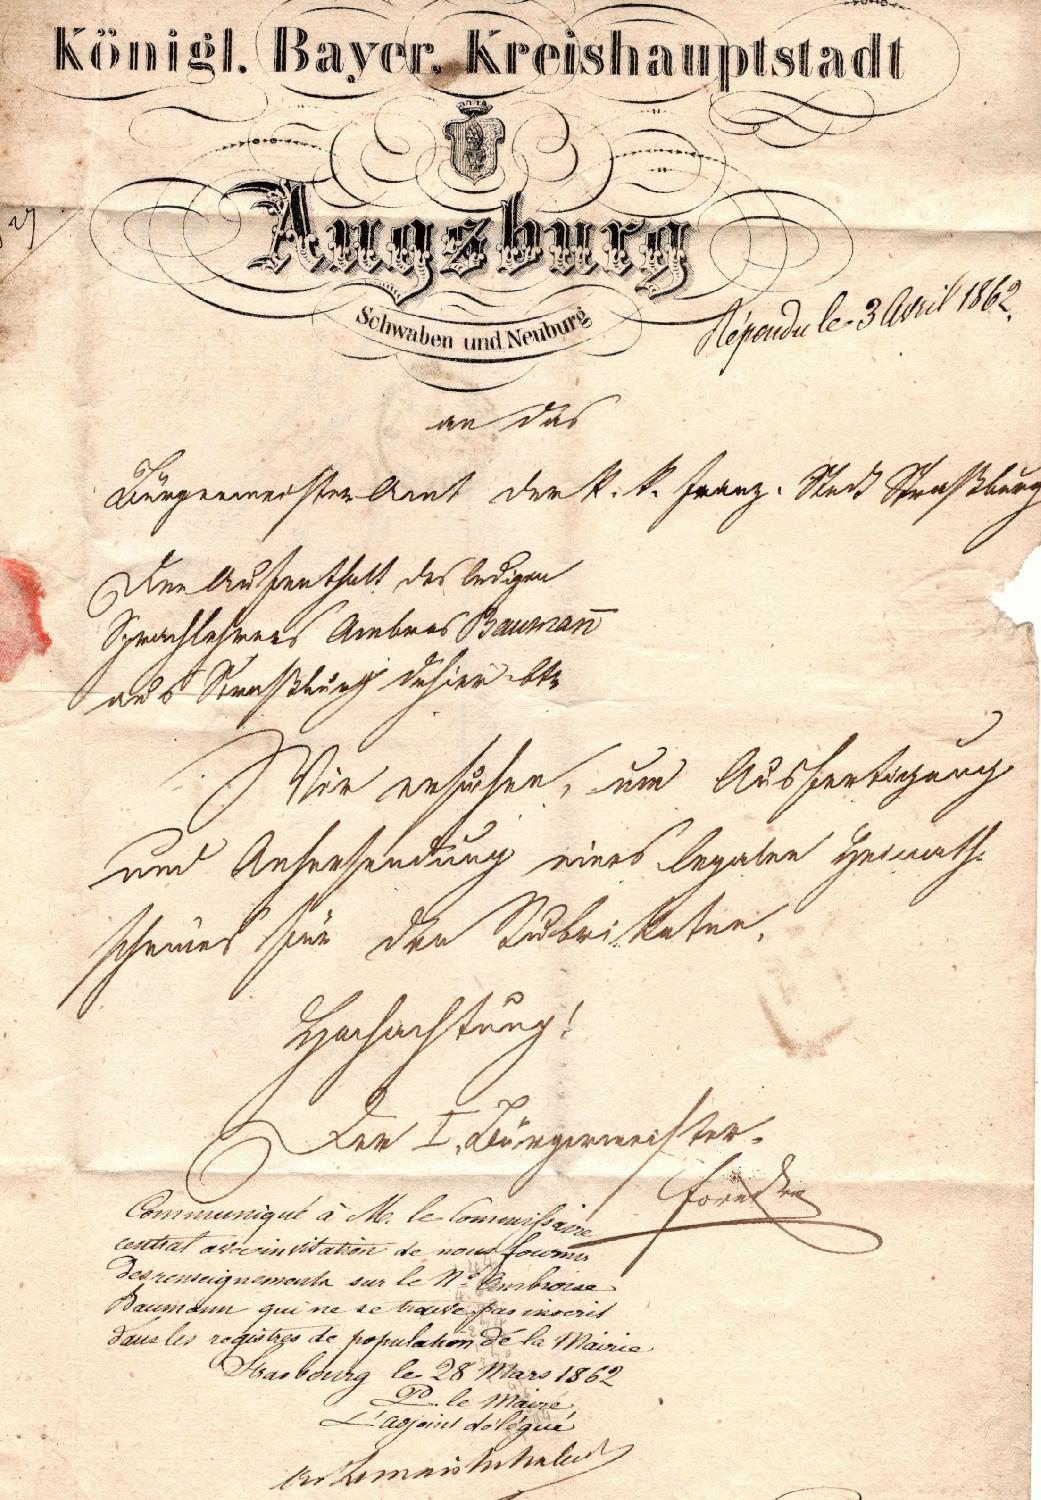 Königl. Bayer. Kreishauptstadt
Augsburg
Schwaben und Neuburg
Répondu le 3 Avril 1862.
an das
Bürgermeister Amt der K. K. franz. Stadt Straßburg
Den Aufenthalt des ledigen
Sprachlehrers Ambros Baumann̄
aus Straßburg dahier btr
Wir ersuchen, um Ausfertigung
und Anhersendung eines legalen Heimath-
scheines für den Rubrikaten.
Hochachtung!
Der I. Bürgermeister.
Forndran
Communiqué à Mr. le Commissaire
central avec invitation de nous fournir
des renseignements sur le Né Ambroise
Baumann qui ne se trouve pas inscrit
dans les registres de population de la Mairie
Strasbourg le 28 Mars 1862
P. le Maire
L'adjoint délégué